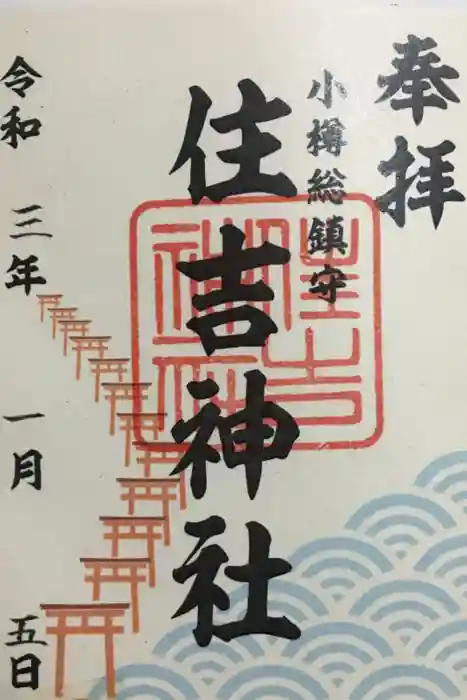 奉拝
小樽総鎮守
住吉神社
住吉神社
令和三年一月五日